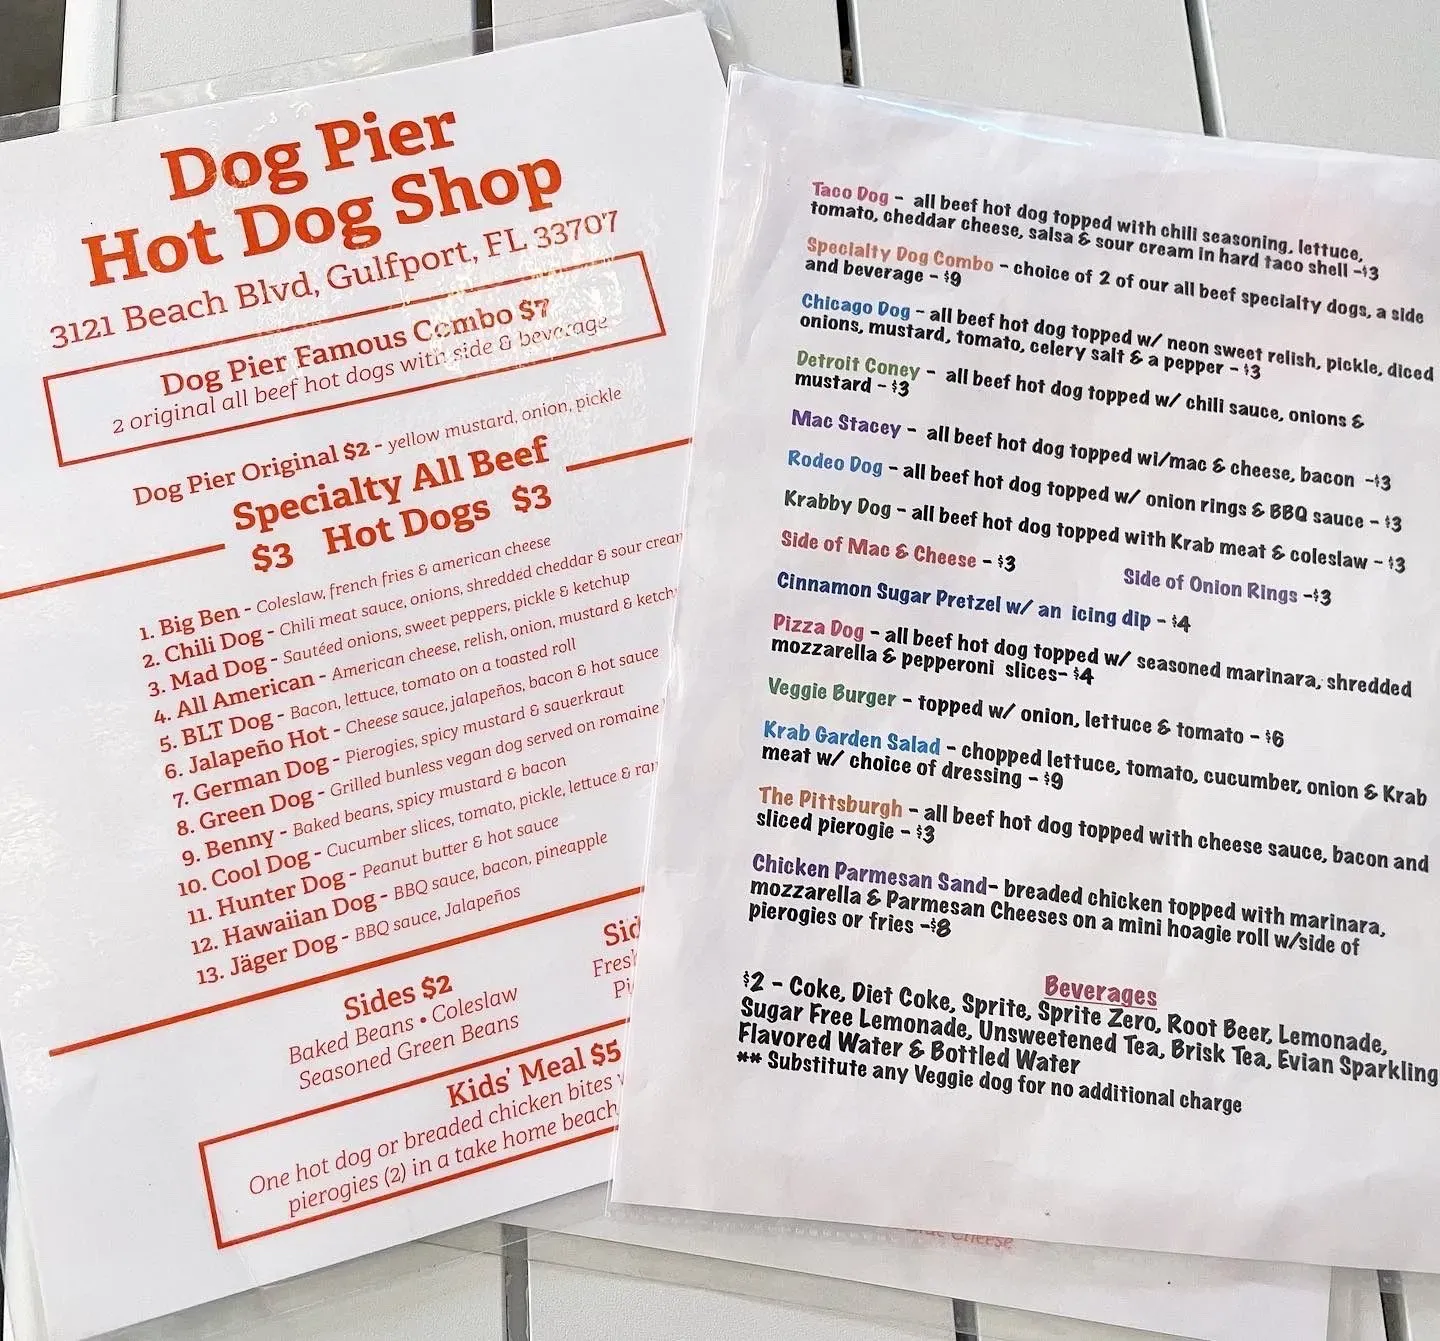 Dog Pier
Hot Dog Shop
3121 Beach Blvd, Gulfport, FL 33707
Dog Pier Famous Combo $7
2 original all beef hot dogs with side & beverage
Dog Pier Original $2 - yellow mustard, onion, pickle
Specialty All Beef
$3 Hot Dogs $3
1. Big Ben - Coleslaw, french fries & american cheese
2. Chili Dog - Chili meat sauce, onions, shredded cheddar & sour cream
3. Mad Dog - Sautéed onions, sweet peppers, pickle & ketchup
4. All American - American cheese, relish, onion, mustard & ketch
5. BLT Dog - Bacon, lettuce, tomato on a toasted roll
6. Jalapeño Hot - Cheese sauce, jalapeños, bacon & hot sauce
7. German Dog - Pierogies, spicy mustard & sauerkraut
8. Green Dog - Grilled bunless vegan dog served on romaine
9. Benny - Baked beans, spicy mustard & bacon
10. Cool Dog - Cucumber slices, tomato, pickle, lettuce & ran
11. Hunter Dog - Peanut butter & hot sauce
12. Hawaiian Dog - BBQ sauce, bacon, pineapple
13. Jäger Dog - BBQ sauce, Jalapeños
Sides $2
Baked Beans • Coleslaw
Seasoned Green Beans
Sid
Fresh
Pi
Kids' Meal $5
One hot dog or breaded chicken bites
pierogies (2) in a take home beach
Taco Dog - all beef hot dog topped with chili seasoning, lettuce,
tomato, cheddar cheese, salsa & sour cream in hard taco shell -$3
Specialty Dog Combo - choice of 2 of our all beef specialty dogs, a side
and beverage - $9
Chicago Dog - all beef hot dog topped w/ neon sweet relish, pickle, diced
onions, mustard, tomato, celery salt & a pepper - $3
Detroit Coney - all beef hot dog topped w/ chili sauce, onions &
mustard - $3
Mac Stacey - all beef hot dog topped wi/mac & cheese, bacon -$3
Rodeo Dog - all beef hot dog topped w/ onion rings & BBQ sauce - $3
Krabby Dog - all beef hot dog topped with Krab meat & coleslaw - $3
Side of Mac & Cheese - $3 Side of Onion Rings -$3
Cinnamon Sugar Pretzel w/ an icing dip - $4
Pizza Dog - all beef hot dog topped w/ seasoned marinara, shredded
mozzarella & pepperoni slices- $4
Veggie Burger - topped w/ onion, lettuce & tomato - $6
Krab Garden Salad - chopped lettuce, tomato, cucumber, onion & Krab
meat w/ choice of dressing - $9
The Pittsburgh - all beef hot dog topped with cheese sauce, bacon and
sliced pierogie - $3
Chicken Parmesan Sand- breaded chicken topped with marinara,
mozzarella & Parmesan Cheeses on a mini hoagie roll w/side of
pierogies or fries -$8
Beverages
$2 - Coke, Diet Coke, Sprite, Sprite Zero, Root Beer, Lemonade,
Sugar Free Lemonade, Unsweetened Tea, Brisk Tea, Evian Sparkling
Flavored Water & Bottled Water
** Substitute any Veggie dog for no additional charge
Cheese